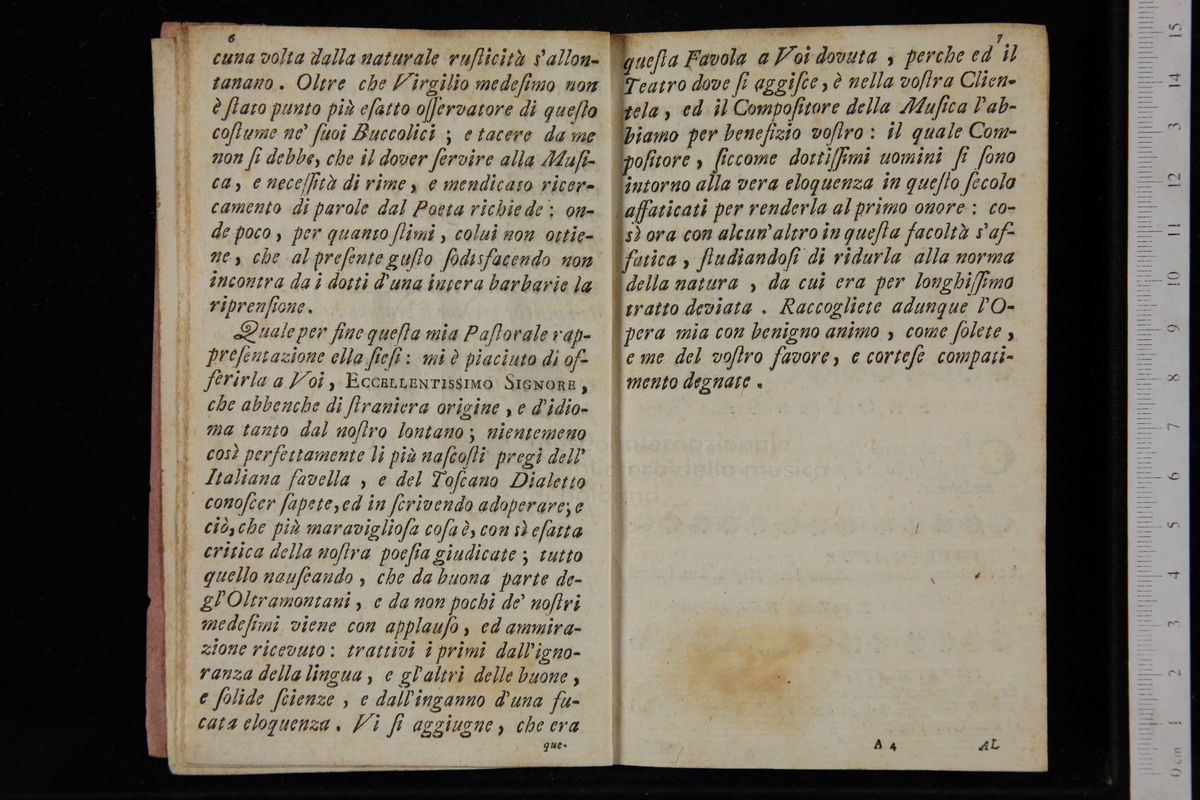 6
cuna volta dalla naturale ruſticità s'allon-
tanano . Oltre che Virgilio medeſimo non
è ſtato punto più eſatto oſſervatore di queſto
coſtume ne' ſuoi Buccolici ; e tacere da me
non ſi debbe, che il dover ſervire alla Muſi-
ca , e neceſſità di rime , e mendicato ricer-
camento di parole dal Poeta richiede : on-
de poco , per quanto ſtimi , colui non ottie-
ne , che al preſente guſto ſodisfacendo non
incontra da i dotti d'una intera barbarie la
riprenſione .
Quale per fine queſta mia Paſtorale rap-
preſentazione ella ſieſi : mi è piaciuto di of-
ferirla a Voi , ECCELLENTISSIMO SIGNORE ,
che abbenche di ſtraniera origine , e d'idio-
ma tanto dal noſtro lontano ; nientemeno
così perfettamente li più naſcoſti pregi dell'
Italiana favella , e del Toſcano Dialetto
conoſcer ſapete, ed in ſcrivendo adoperare; e
ciò, che più maraviglioſa coſa è, con sì eſatta
critica della noſtra poeſia giudicate ; tutto
quello nauſeando , che da buona parte de-
gl'Oltramontani , e da non pochi de' noſtri
medeſimi viene con applauſo , ed ammira-
zione ricevuto : trattivi i primi dall'igno-
ranza della lingua , e gl'altri delle buone ,
e ſolide ſcienze , e dall'inganno d'una fu-
cata eloquenza . Vi ſi aggiugne , che era
que-
7
queſta Favola a Voi dovuta , perche ed il
Teatro dove ſi aggiſce , è nella voſtra Clien-
tela , ed il Compoſitore della Muſica l'ab-
biamo per benefizio voſtro : il quale Com-
poſitore , ſiccome dottiſſimi uomini ſi ſono
intorno alla vera eloquenza in queſto ſecolo
affaticati per renderla al primo onore : co-
sì ora con alcun'altro in queſta facoltà s'af-
fatica , ſtudiandoſi di ridurla alla norma
della natura , da cui era per longhiſſimo
tratto deviata . Raccogliete adunque l'O-
pera mia con benigno animo , come ſolete ,
e me del voſtro favore, e corteſe compati-
mento degnate .
A 4
AL
internazionale
biblioteca della musica
0 cm 1 2 3 4 5 6 7 8 9 10 11 12 13 14 15